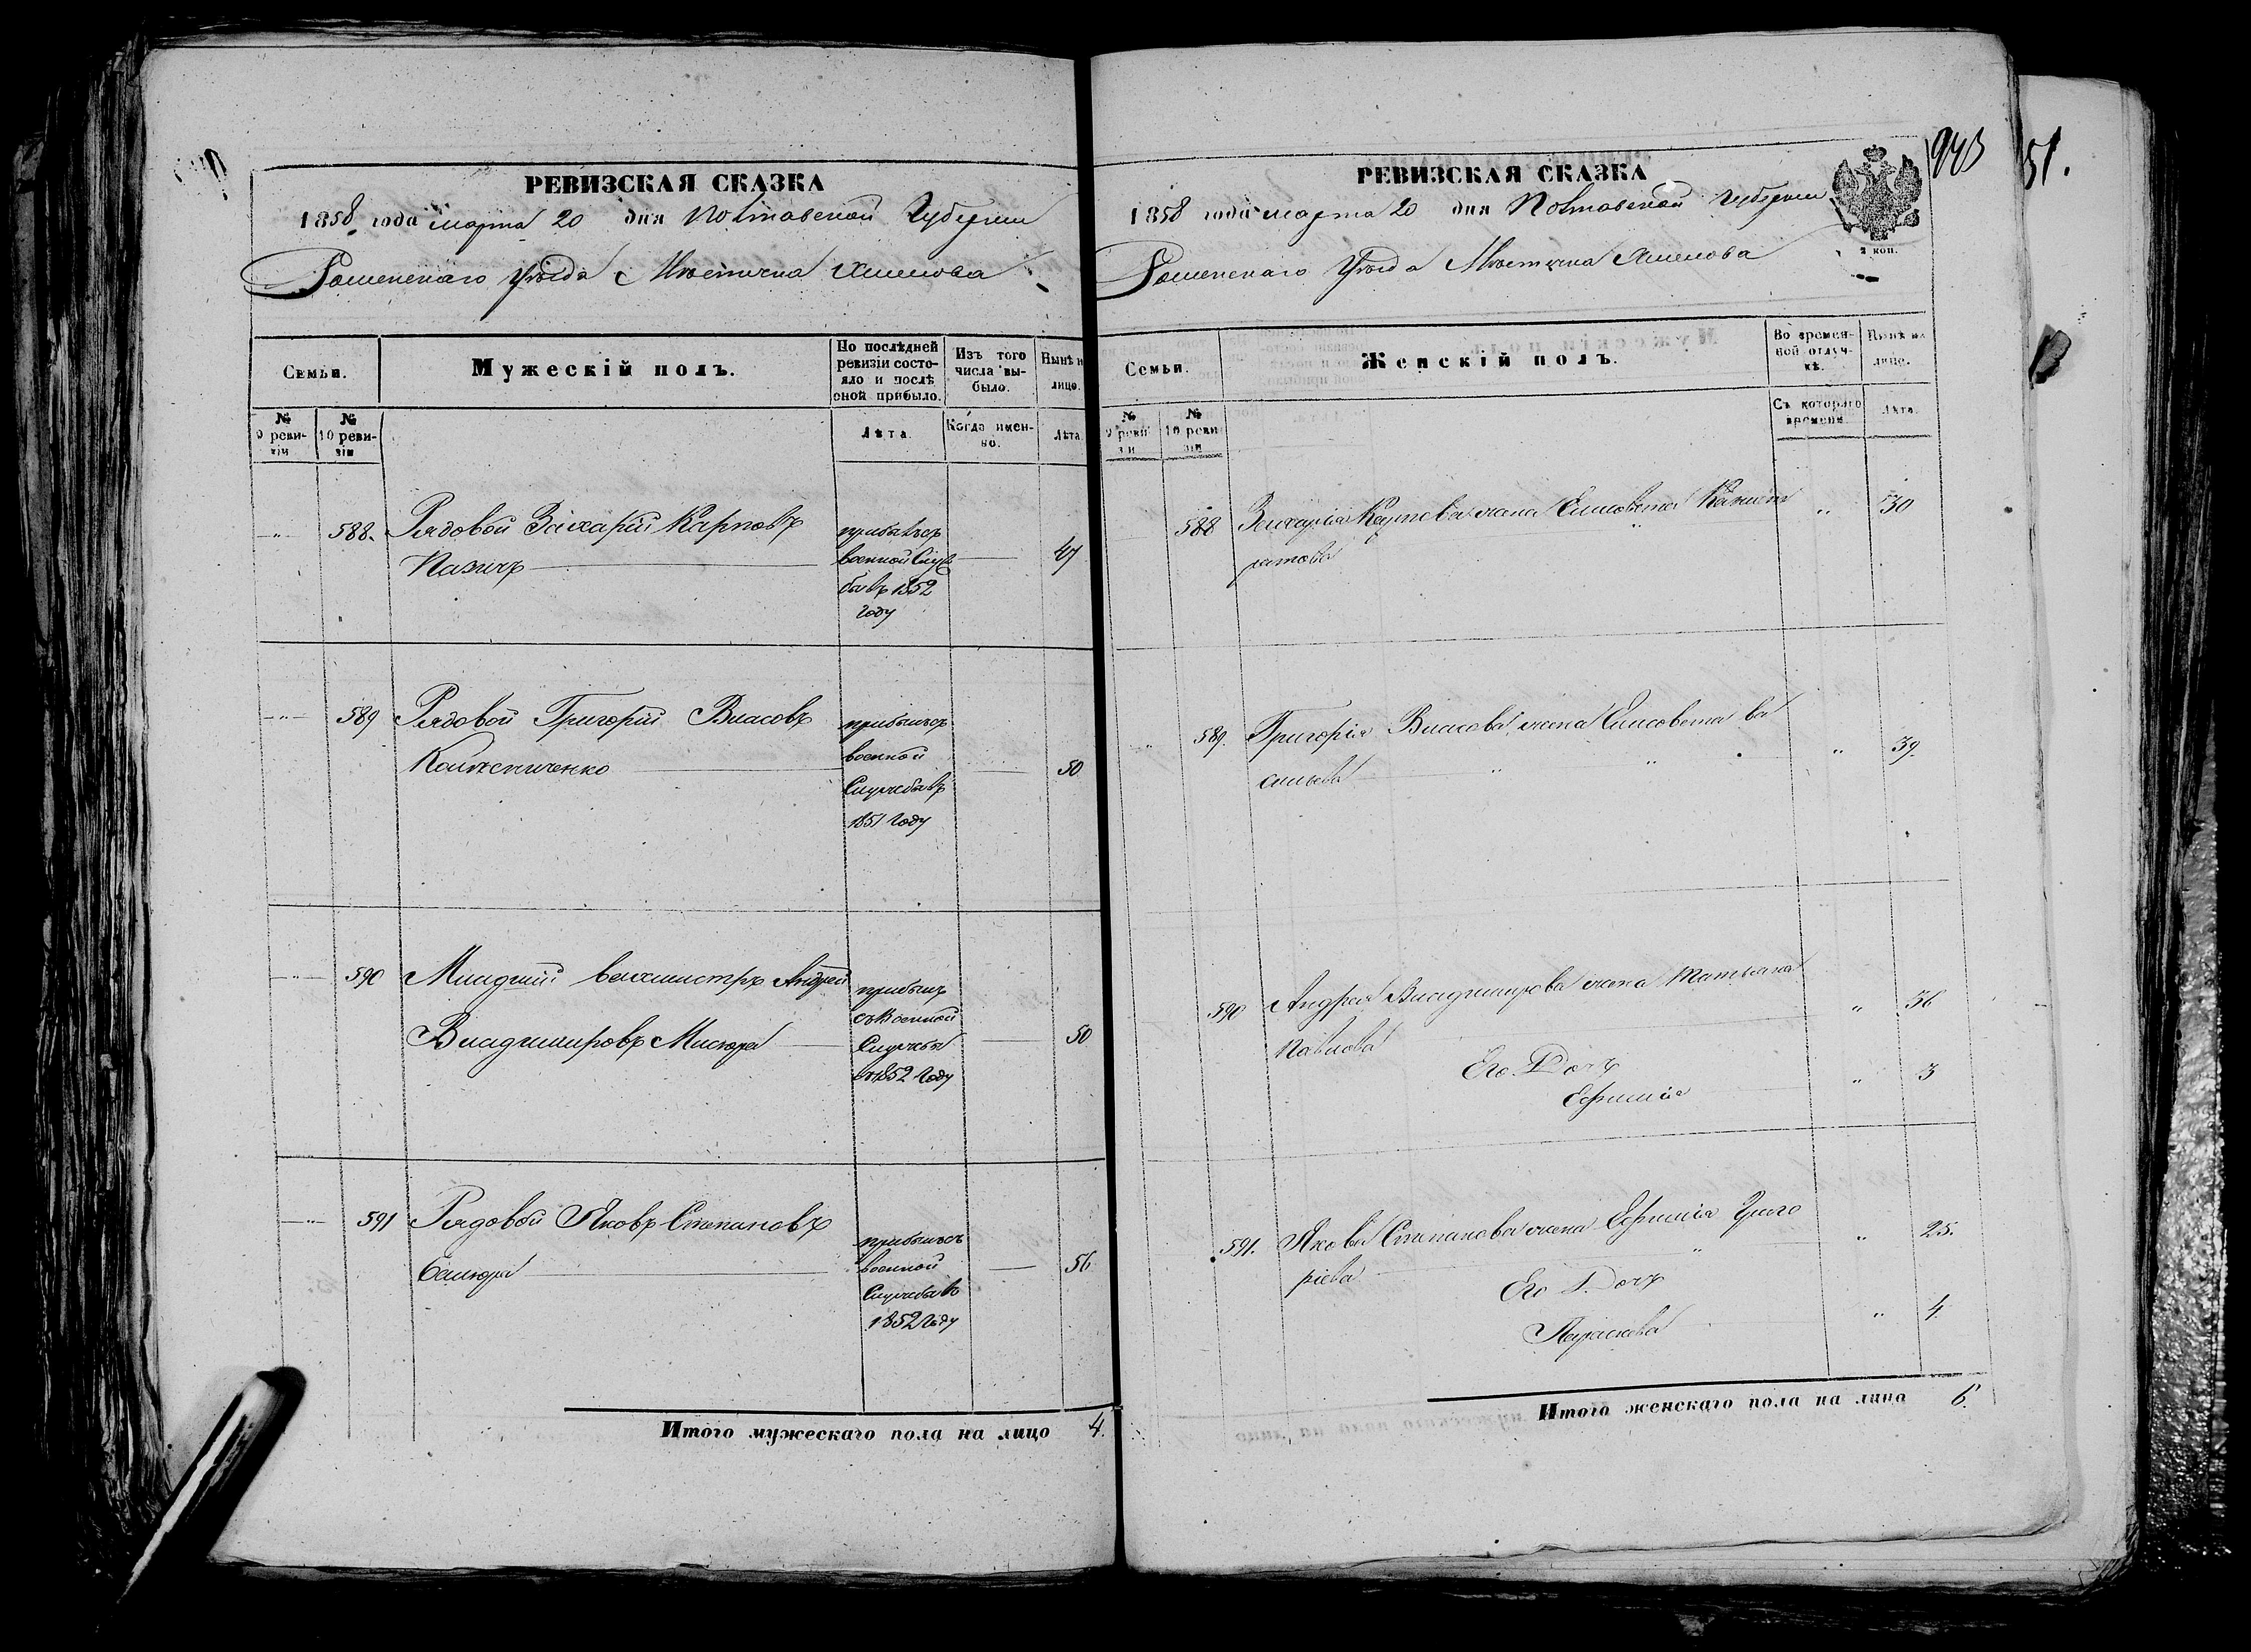 РЕВИЗСКАЯ СКАЗКА
1858 года марта 20 дня Полтавской Губернии
Роменскаго Уѣзда Мѣстечка Хмелова
Семьи.
Мужескій полъ.
По послѣдней ревизіи состояло и послѣ оной прибыло.
Изъ того числа выбыло.
Нынѣ на лицо.
№ 9 ревизіи
№ 10 ревизіи
Лѣта.
Когда именно.
Лѣта.
588. Рядовой Захарій Карповъ
прибылъ съ
военной служ
бы въ 1852
году
47
589 Рядовой Григорій Власовъ
прибылъ съ
военной
Службы въ
1851 году
50
590 Младшій вахмистръ Андрей
Владимировъ Мисюра
прибылъ
съ Военной
Службы
въ 1852 году
50
591 Рядовой Яковъ Степановъ
прибылъ съ
военной
Службы въ
1852 году
56
Итого мужескаго пола на лицо 4.
РЕВИЗСКАЯ СКАЗКА
943
51.
1858 года марта 20 дня Полтавской Губернии
2 коп.
Роменскаго Уѣзда Мѣстечка Хмелова
Семьи.
Женскій полъ.
Во временной отлучкѣ.
Нынѣ на лицо.
№ 9 ревизіи
№ 10 ревизіи
Съ котораго времени.
Лѣта.
588 Захарія Карпова жена Елисовета Канид
ратова
30
589. Григорія Власова жена Елисовета Ва
сильева
39.
590 Андрея Владимирова жена Татьяна
Павлова
36
Его Дочь
Ефимія
3
591. Якова Степанова жена Ефимія Григо
ріева
25.
Его Дочь
Параскева
4.
Итого женскаго пола на лицо 6.